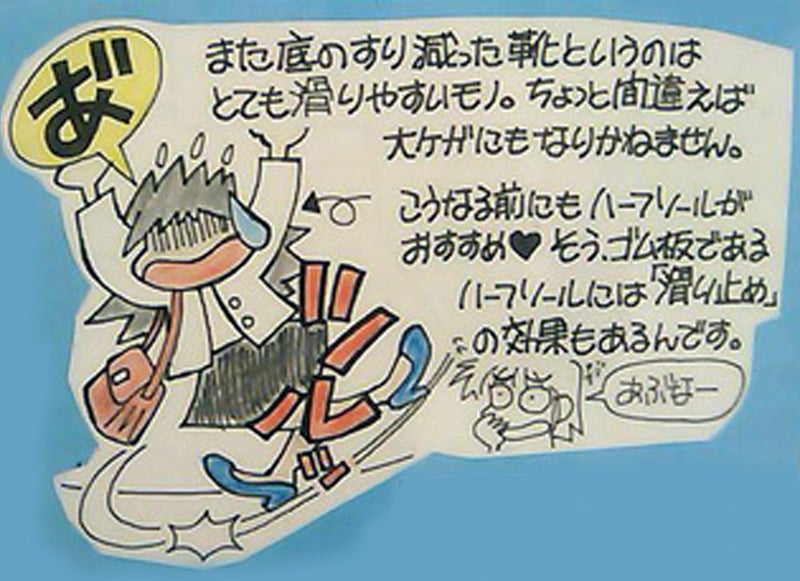 あ゛
また底のすり減った靴というのは
とても滑りやすいモノ。ちょっと間違えば
大ケガにもなりかねません。
こうなる前にもハーフソールが
おすすめ♥そう、ゴム板である
ハーフソールには「滑り止め」
の効果もあるんです。
ツルッ
あぶねー